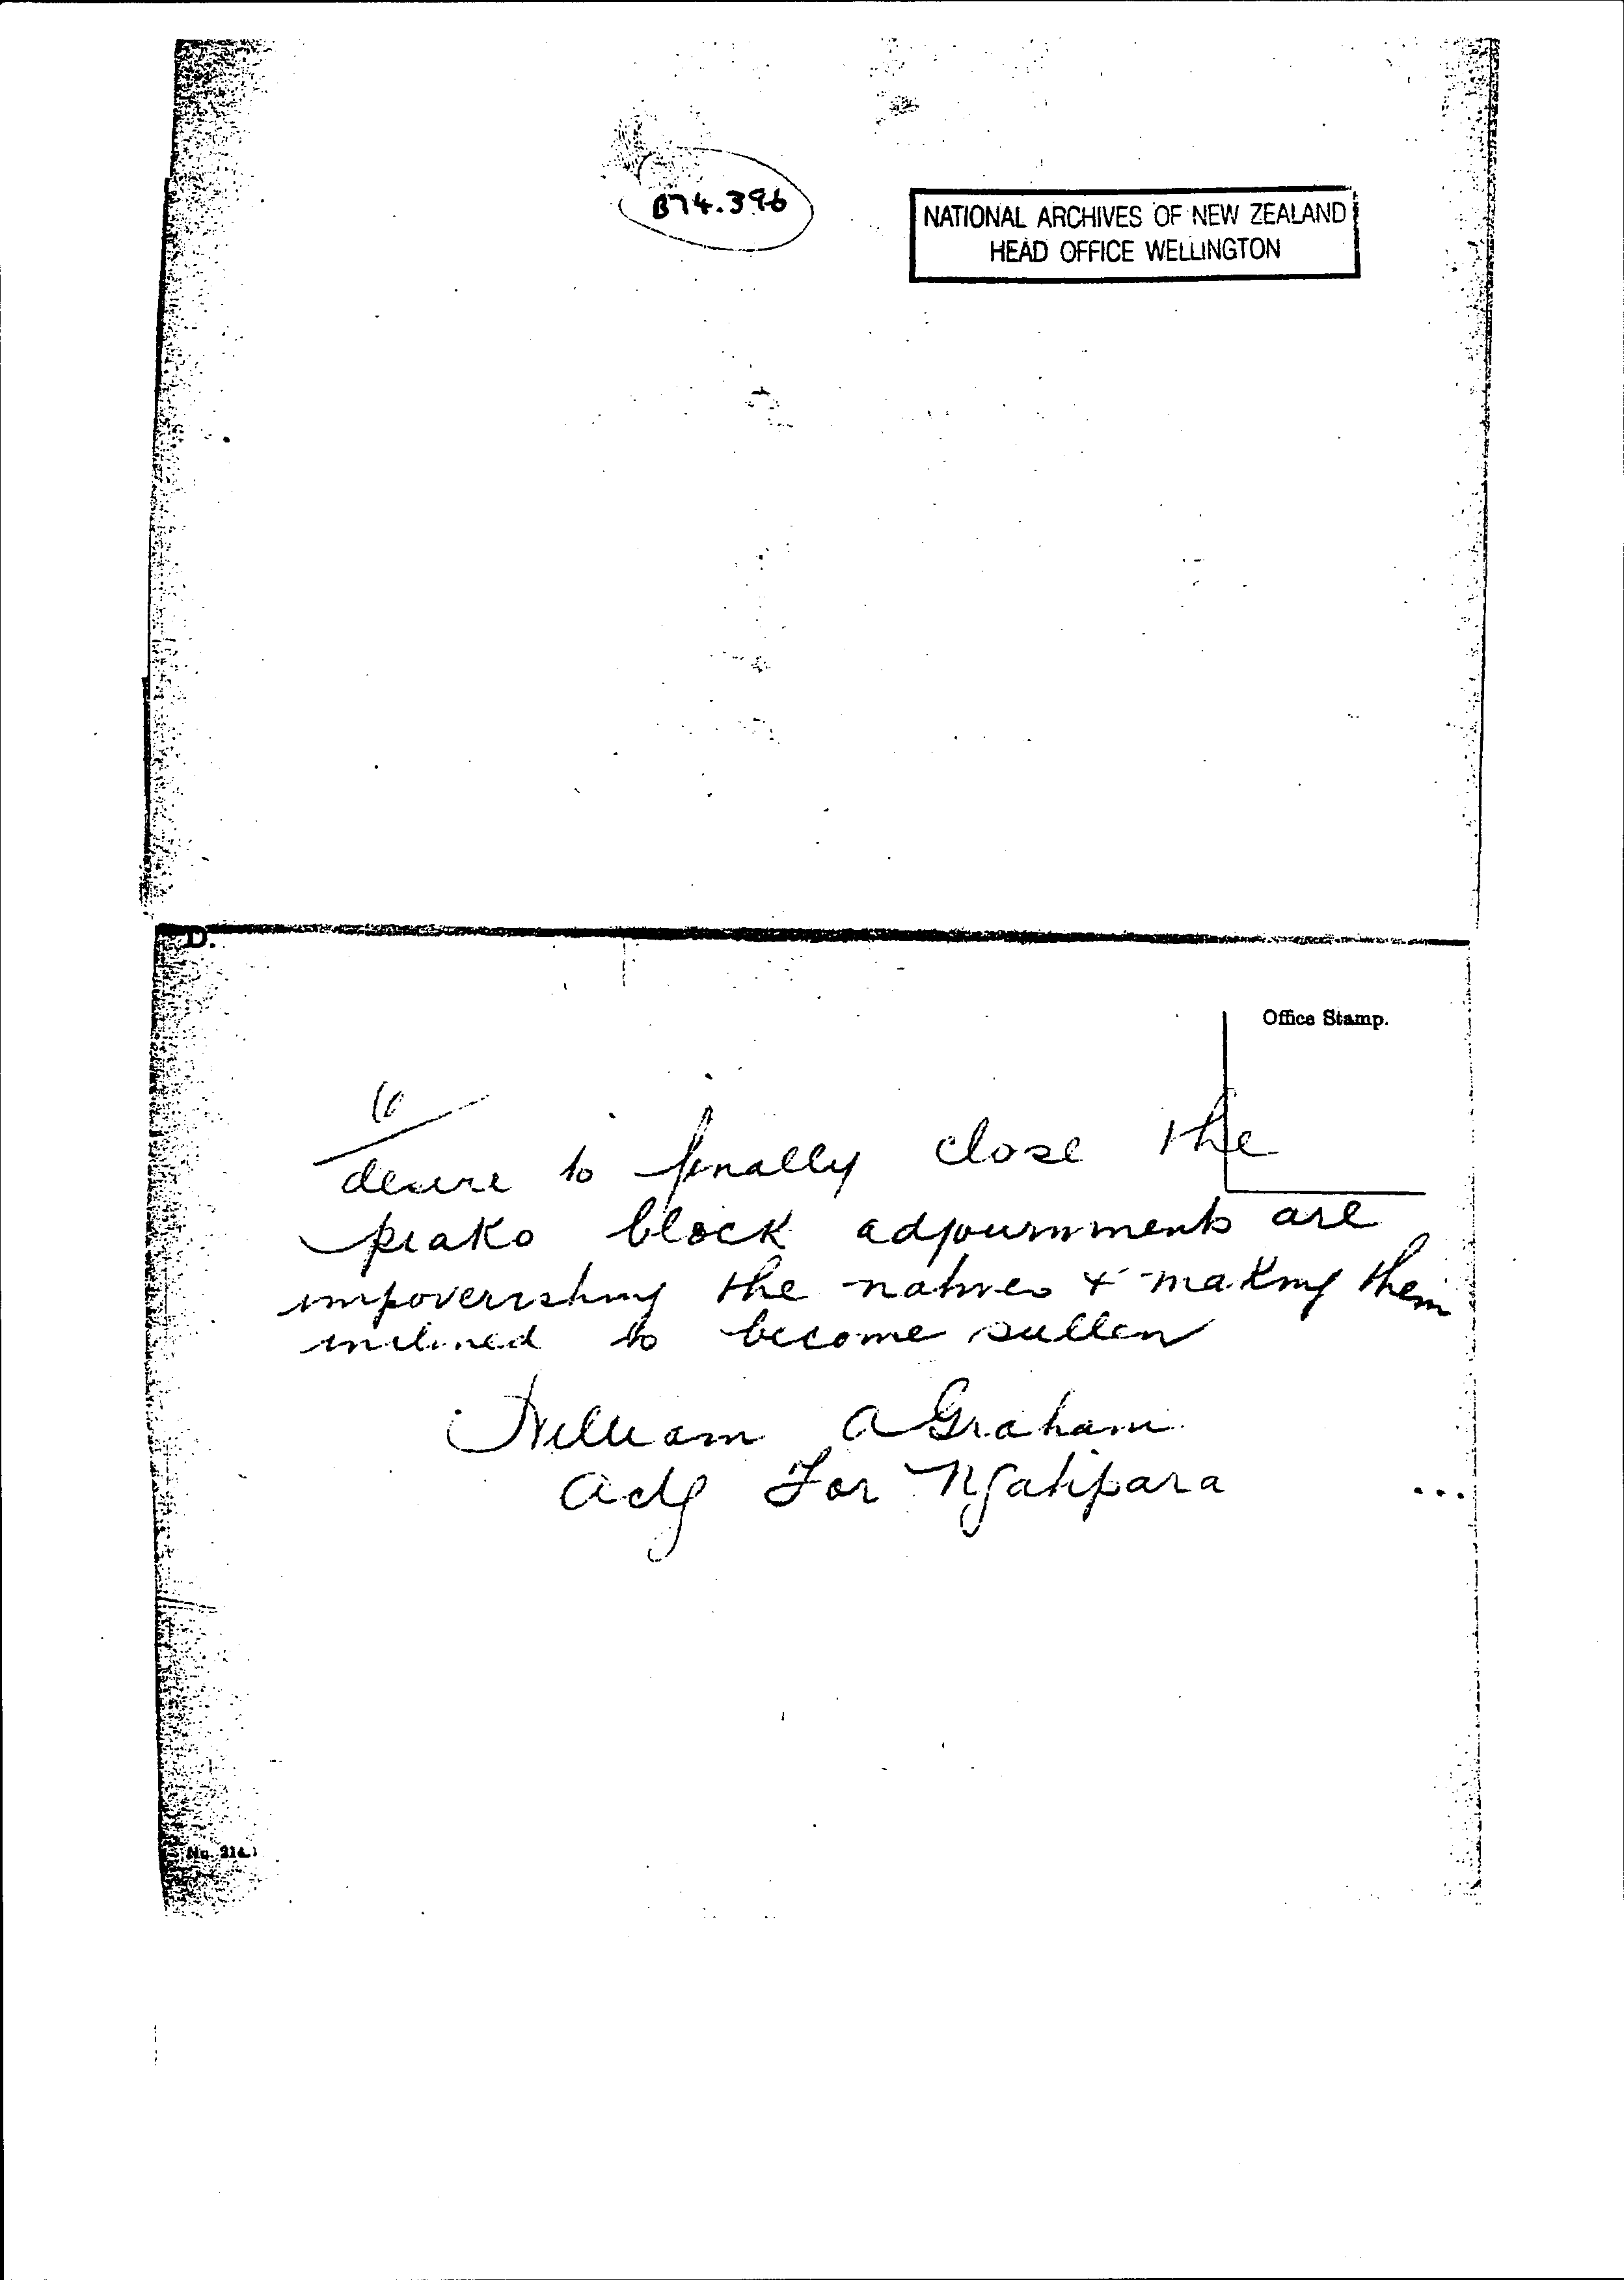 B74.396
NATIONAL ARCHIVES OF NEW ZEALAND
HEAD OFFICE WELLINGTON
D.
Office Stamp.
desire to finally close the
piako block adjournments are
impoverishing the natives & making them
inclined to become sullen
William A Graham
Actg For Ngatipara
No. 214.)